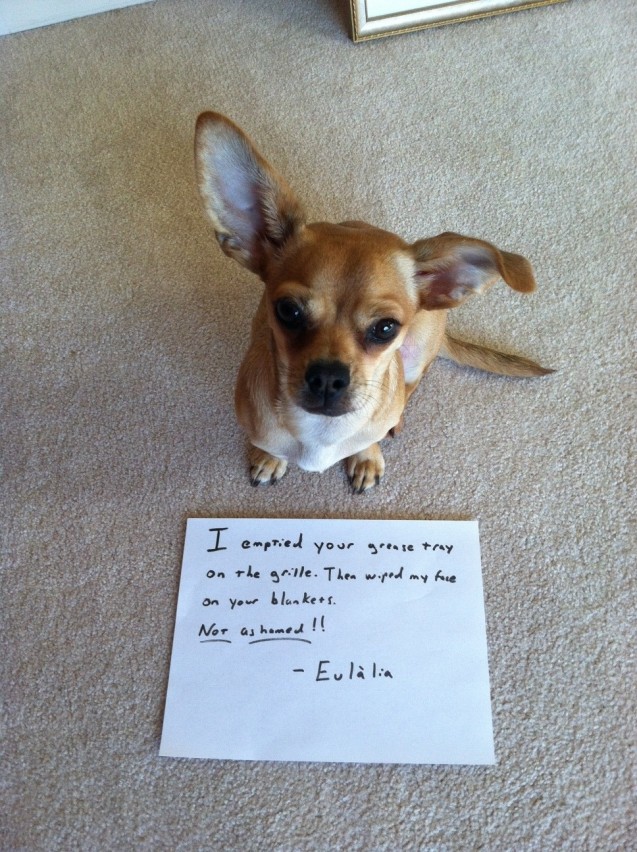 I emptied your grease tray
on the grille. Then wiped my face
on your blankets.
Not ashamed!!
- Eulàlia